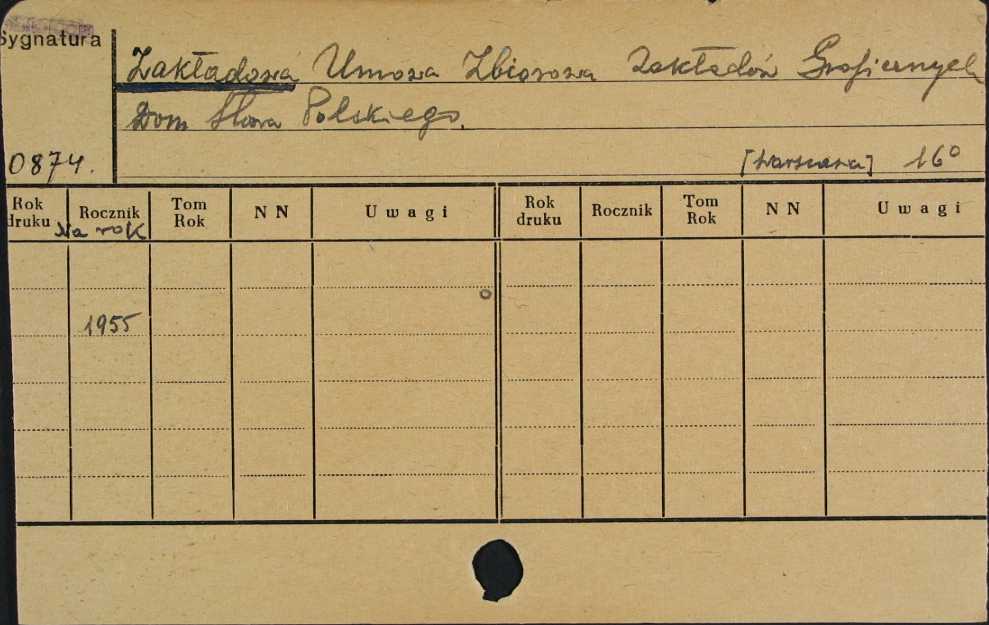 Sygnatura
Zakładowa Umowa Zbiorowa Zakładów Graficznych
Dom Słowa Polskiego.
0874. [Warszawa] 16°
Rok druku Rocznik Tom Rok NN Uwagi Rok druku Rocznik Tom Rok NN Uwagi
Na rok
1955